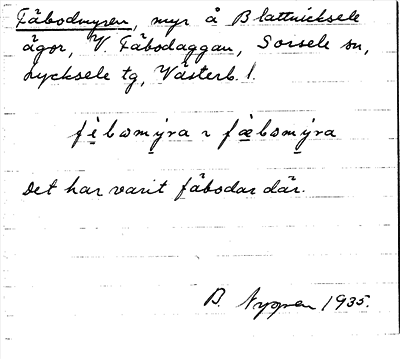 Fäbodmyren, myr å Blattnicksele
ägor, V. Fäbodaggan, Sorsele sn,
Lycksele tg, Västerb. l.
fèbωmýra ~ fæ̀bωmýra
Det har varit fäbodar där.
B. Nygren 1935.